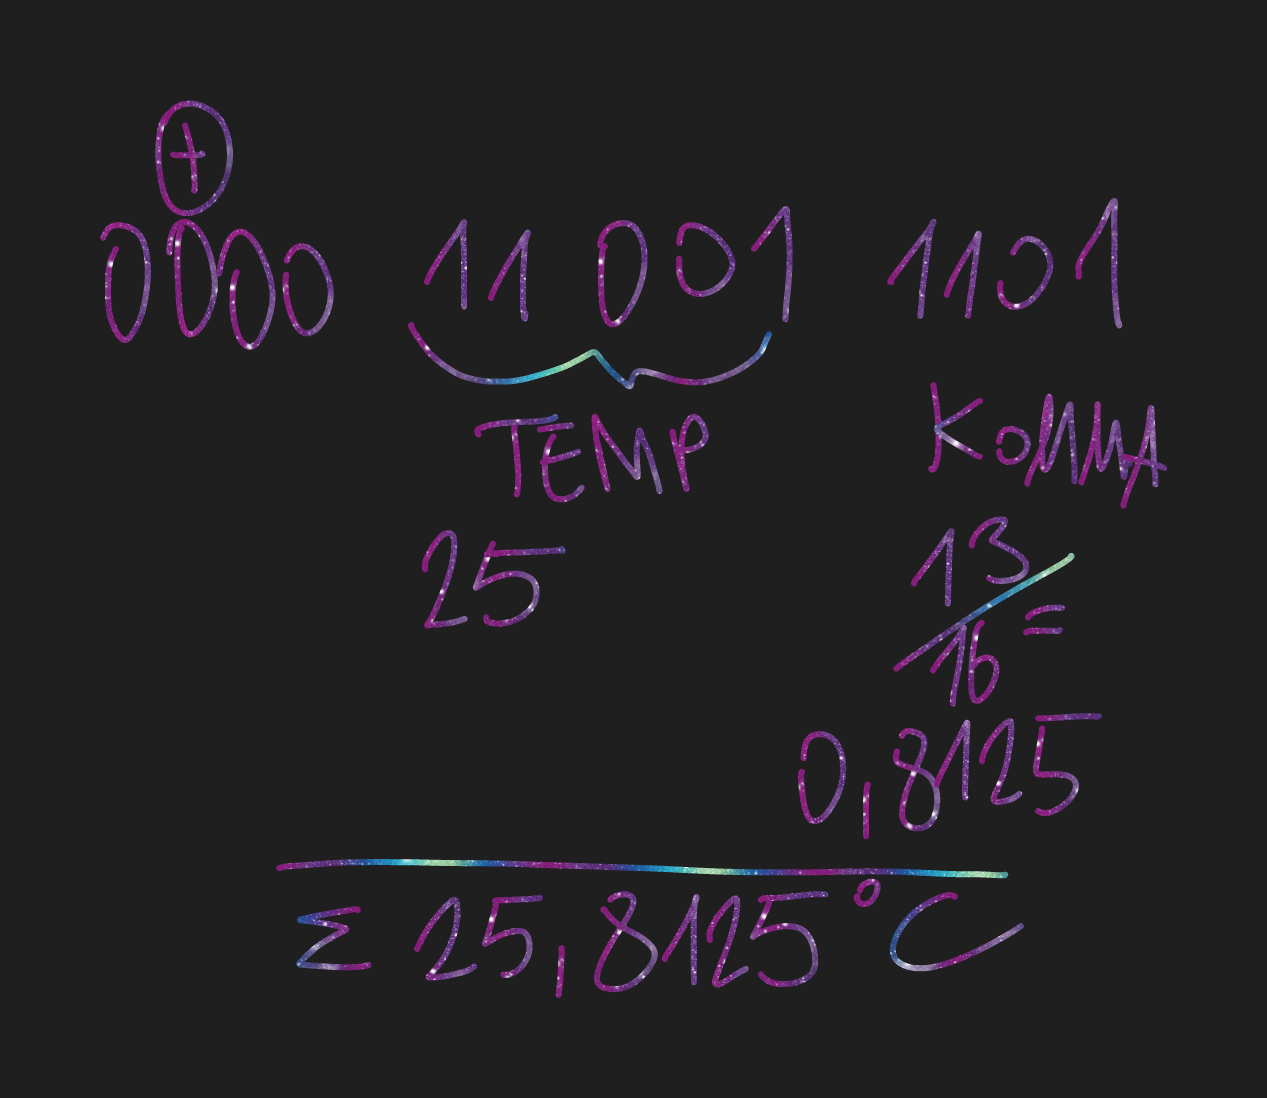 +
0000 11001 1101
TEMP KOMMA
25 13/16 =
0,8125
Σ 25,8125°C